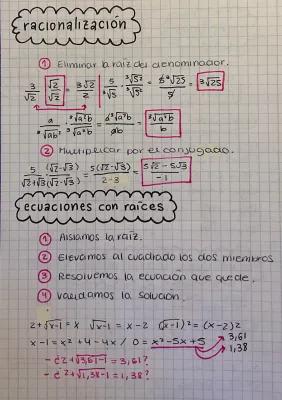 racionalización
① Eliminar la raíz del denominador.
3/√2 · √2/√2 = 3√2/2   5/³√5 · ³√5²/³√5² = 5³√25/5 = ³√25
a/³√ab² · ³√a²b/³√a²b = a³√a²b/ab = ³√a²b/b
② Multiplicar por el conjugado.
5/√2+√3 (√2-√3)/(√2-√3) = 5(√2-√3)/2-3 = 5√2-5√3/-1
ecuaciones con raíces
① Aislamos la raíz.
② Elevamos al cuadrado los dos miembros
③ Resolvemos la ecuación que quede.
④ Validamos la solución.
2+√x-1 = x   √x-1 = x-2   (√x-1)² = (x-2)2
x-1 = x²+4-4x / 0 = x²-5x+5 3,61
1,38
- ¿2+√3,61-1 = 3,61?
- ¿2+√1,38-1 = 1,38?